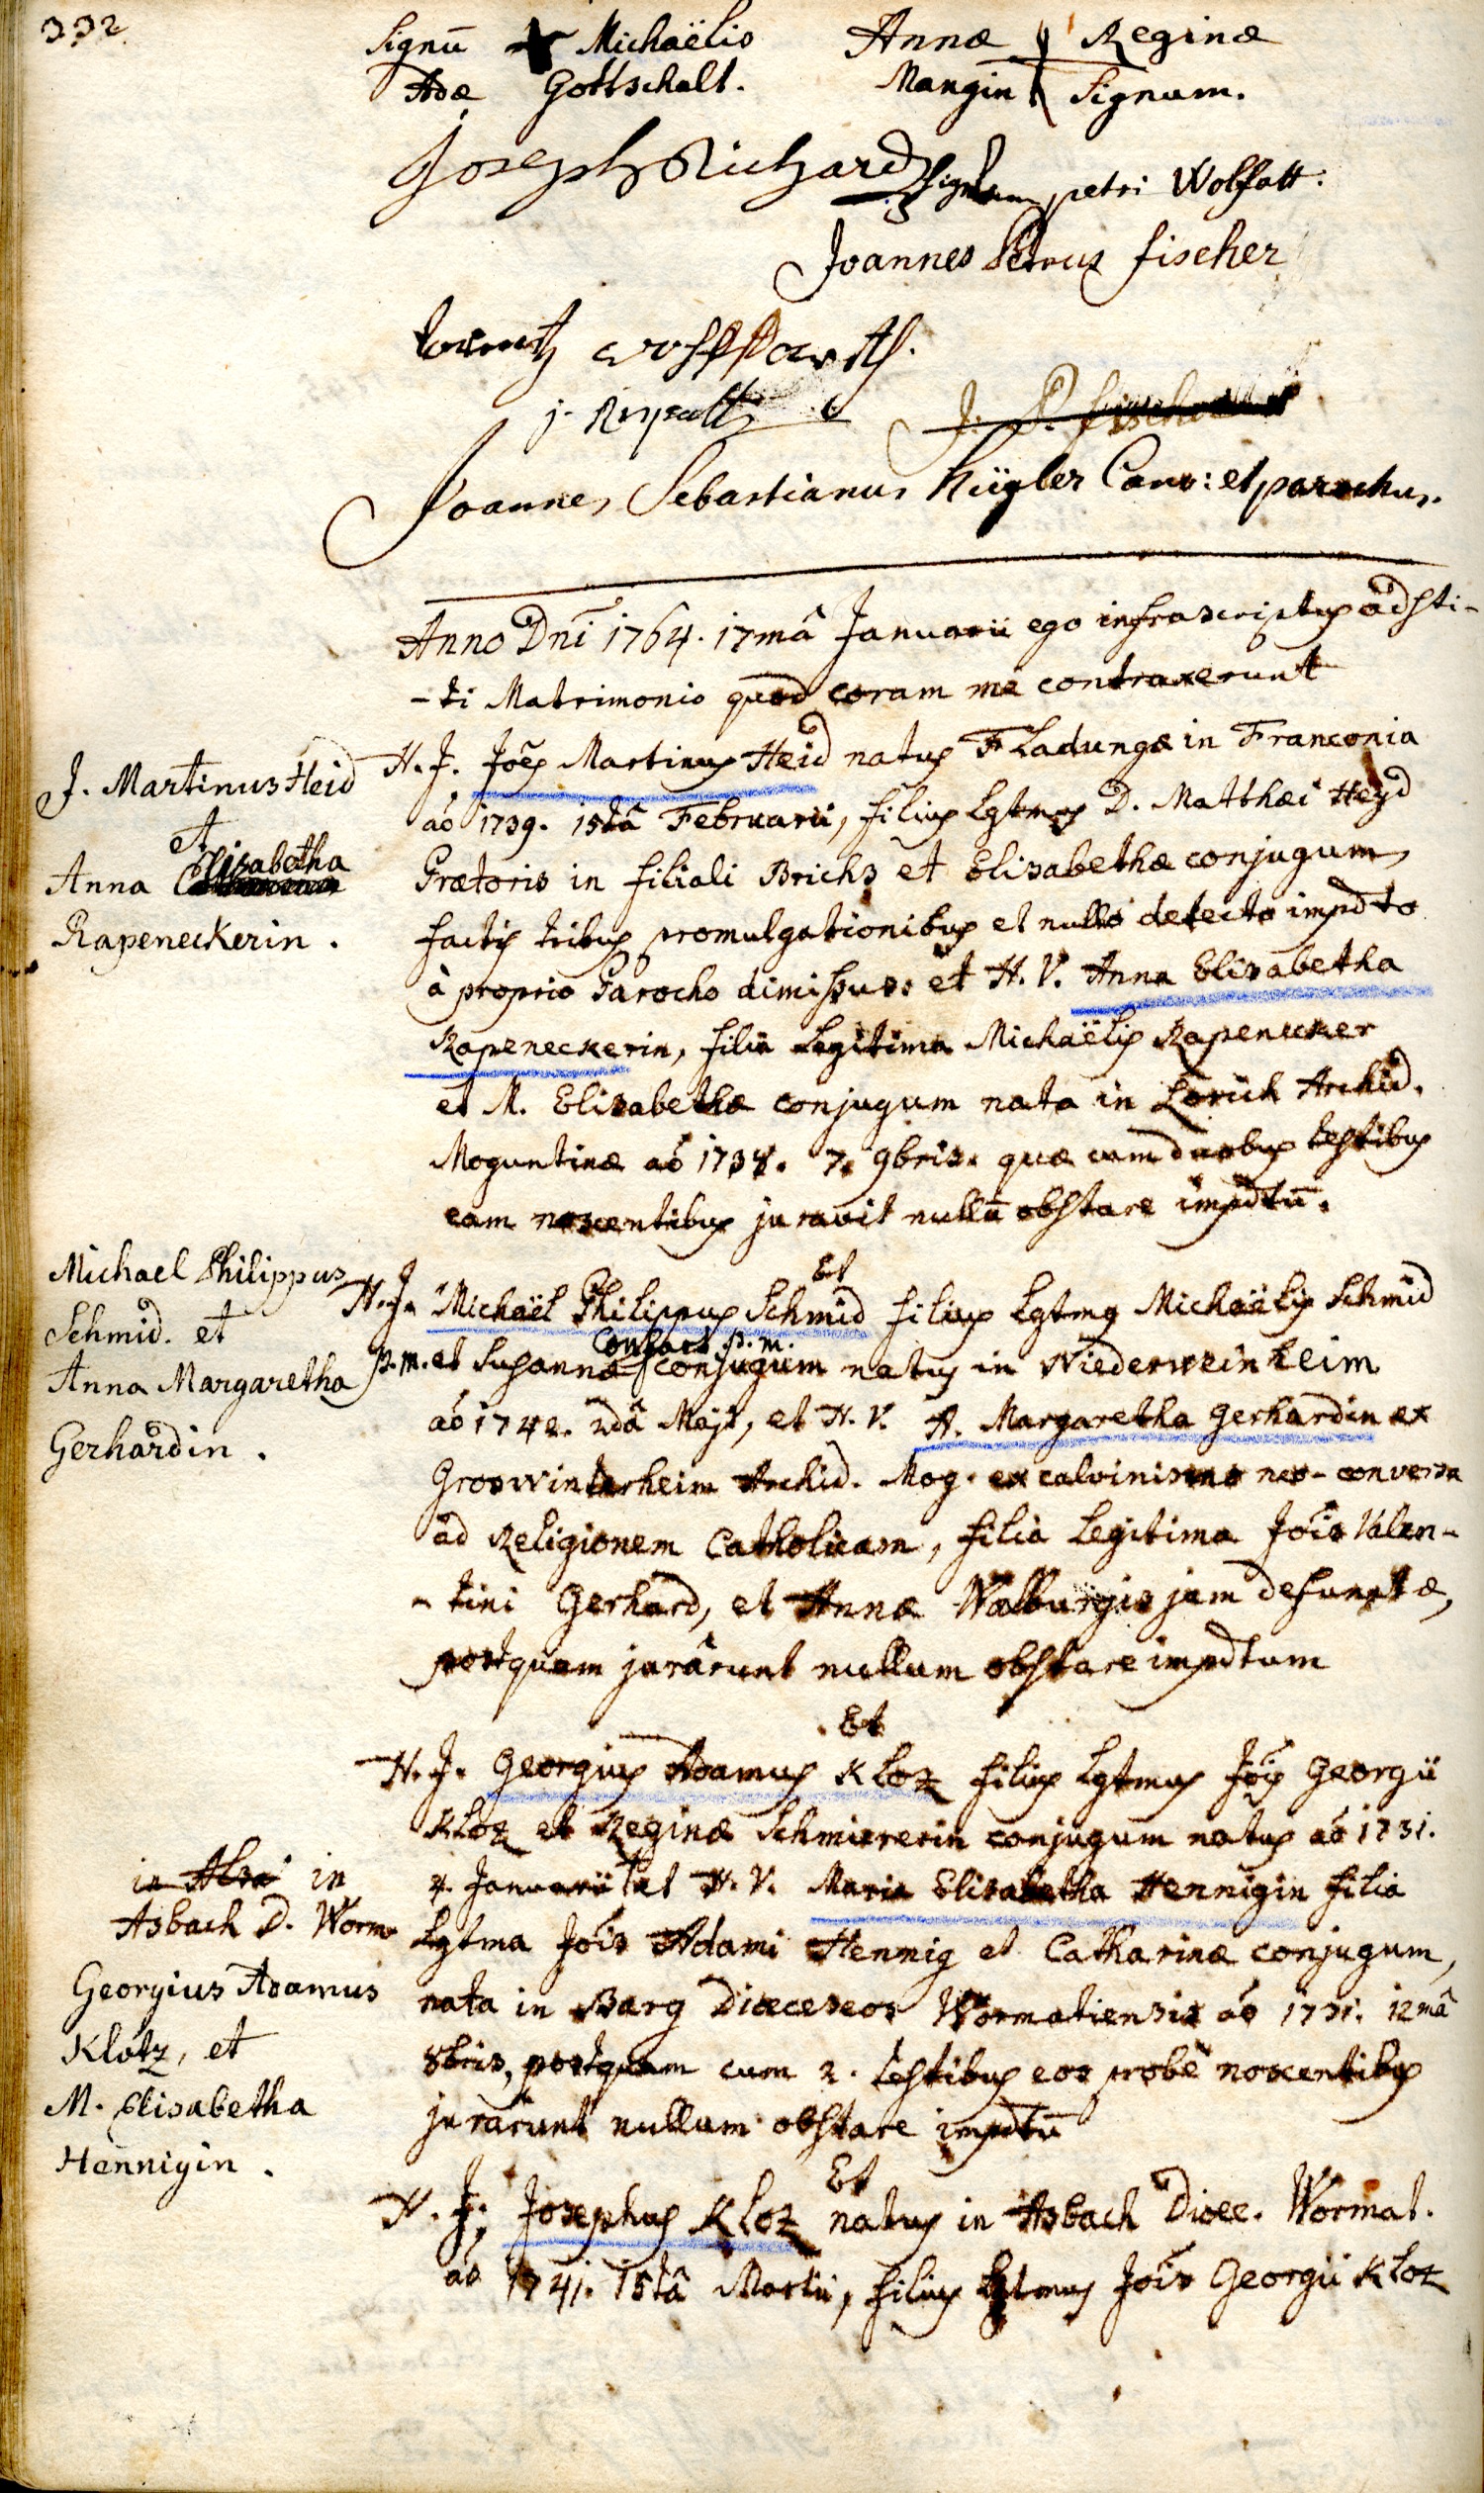 332
Signũ Michaëlis Annæ Reginæ
Adæ Gottschalt. Mangin Signum.
Joseph Richard Signum petri Wolfatt.
Joannes Petrus fischer
Lorentz
J. P. fischer
Joannes Sebastianus Kügler Can: et parochus.
Anno Dni 1764. 17mâ Januarii ego infrascriptus adsti-
-ti Matrimonio quod coram me contraxerunt
J. Martinus Heid
et
Anna Elisabetha
Rapeneckerin.
H. J. Joes Martinus Heid natus Fladungæ in Franconia
aó 1739. 15tâ Februarii, filius Lgtmus D. Matthæi Heyd
Prætoris in filiali Brichs et Elisabethæ conjugum,
factis tribus promulgationibus et nullo detecto impdto
à proprio Parocho dimissus: et H. V. Anna Elisabetha
Rapeneckerin, filia Legitima Michaëlis Rapenecker
et M. Elisabethæ conjugum nata in Lorich Archid.
Moguntinæ aó 1738. 7. 9bris. quæ cum duobus testibus
eam noscentibus juravit nullũ obstare impdtũ.
Michael Philippus
Schmid. et
Anna Margaretha
Gerhardin.
Et
H. J. Michaël Philippus Schmid filius Lgtmus Michaëlis Schmid
p.m. et Susannæ p.m. conjugum natus in Niederweinheim
aó 1742. 2dâ Maji, et H. V. A. Margaretha Gerhardin ex
Groswinterheim Archid. Mog. ex calvinismo neo-conversa
ad Religionem Catholicam, filia Legitima Jois Valen-
-tini Gerhard, et Annæ Walburgis jam defunctæ,
postquam jurârunt nullum obstare impdtum
Et
H. J. Georgius Adamus Kloz filius Lgtmus Jois Georgii
Kloz et Reginæ Schmiererin conjugum natus aó 1731.
4. Januarii et H. V. Maria Elisabetha Hennigin filia
Lgtma Jois Adami Hennig et Catharinæ conjugum,
nata in Barg Diœceseos Wormatiensis aó 1731. 12mâ
8bris, postquam cum 2. testibus eos probè noscentibus
jurârunt nullum obstare impdtũ
in Alsa in
Asbach D. Worm
Georgius Adamus
Klotz, et
M. Elisabetha
Hennigin.
Et
H. J. Josephus Kloz natus in Asbach Diœc. Wormat.
aó 1741. 15tâ Martii, filius Lgtmus Jois Georgii Kloz